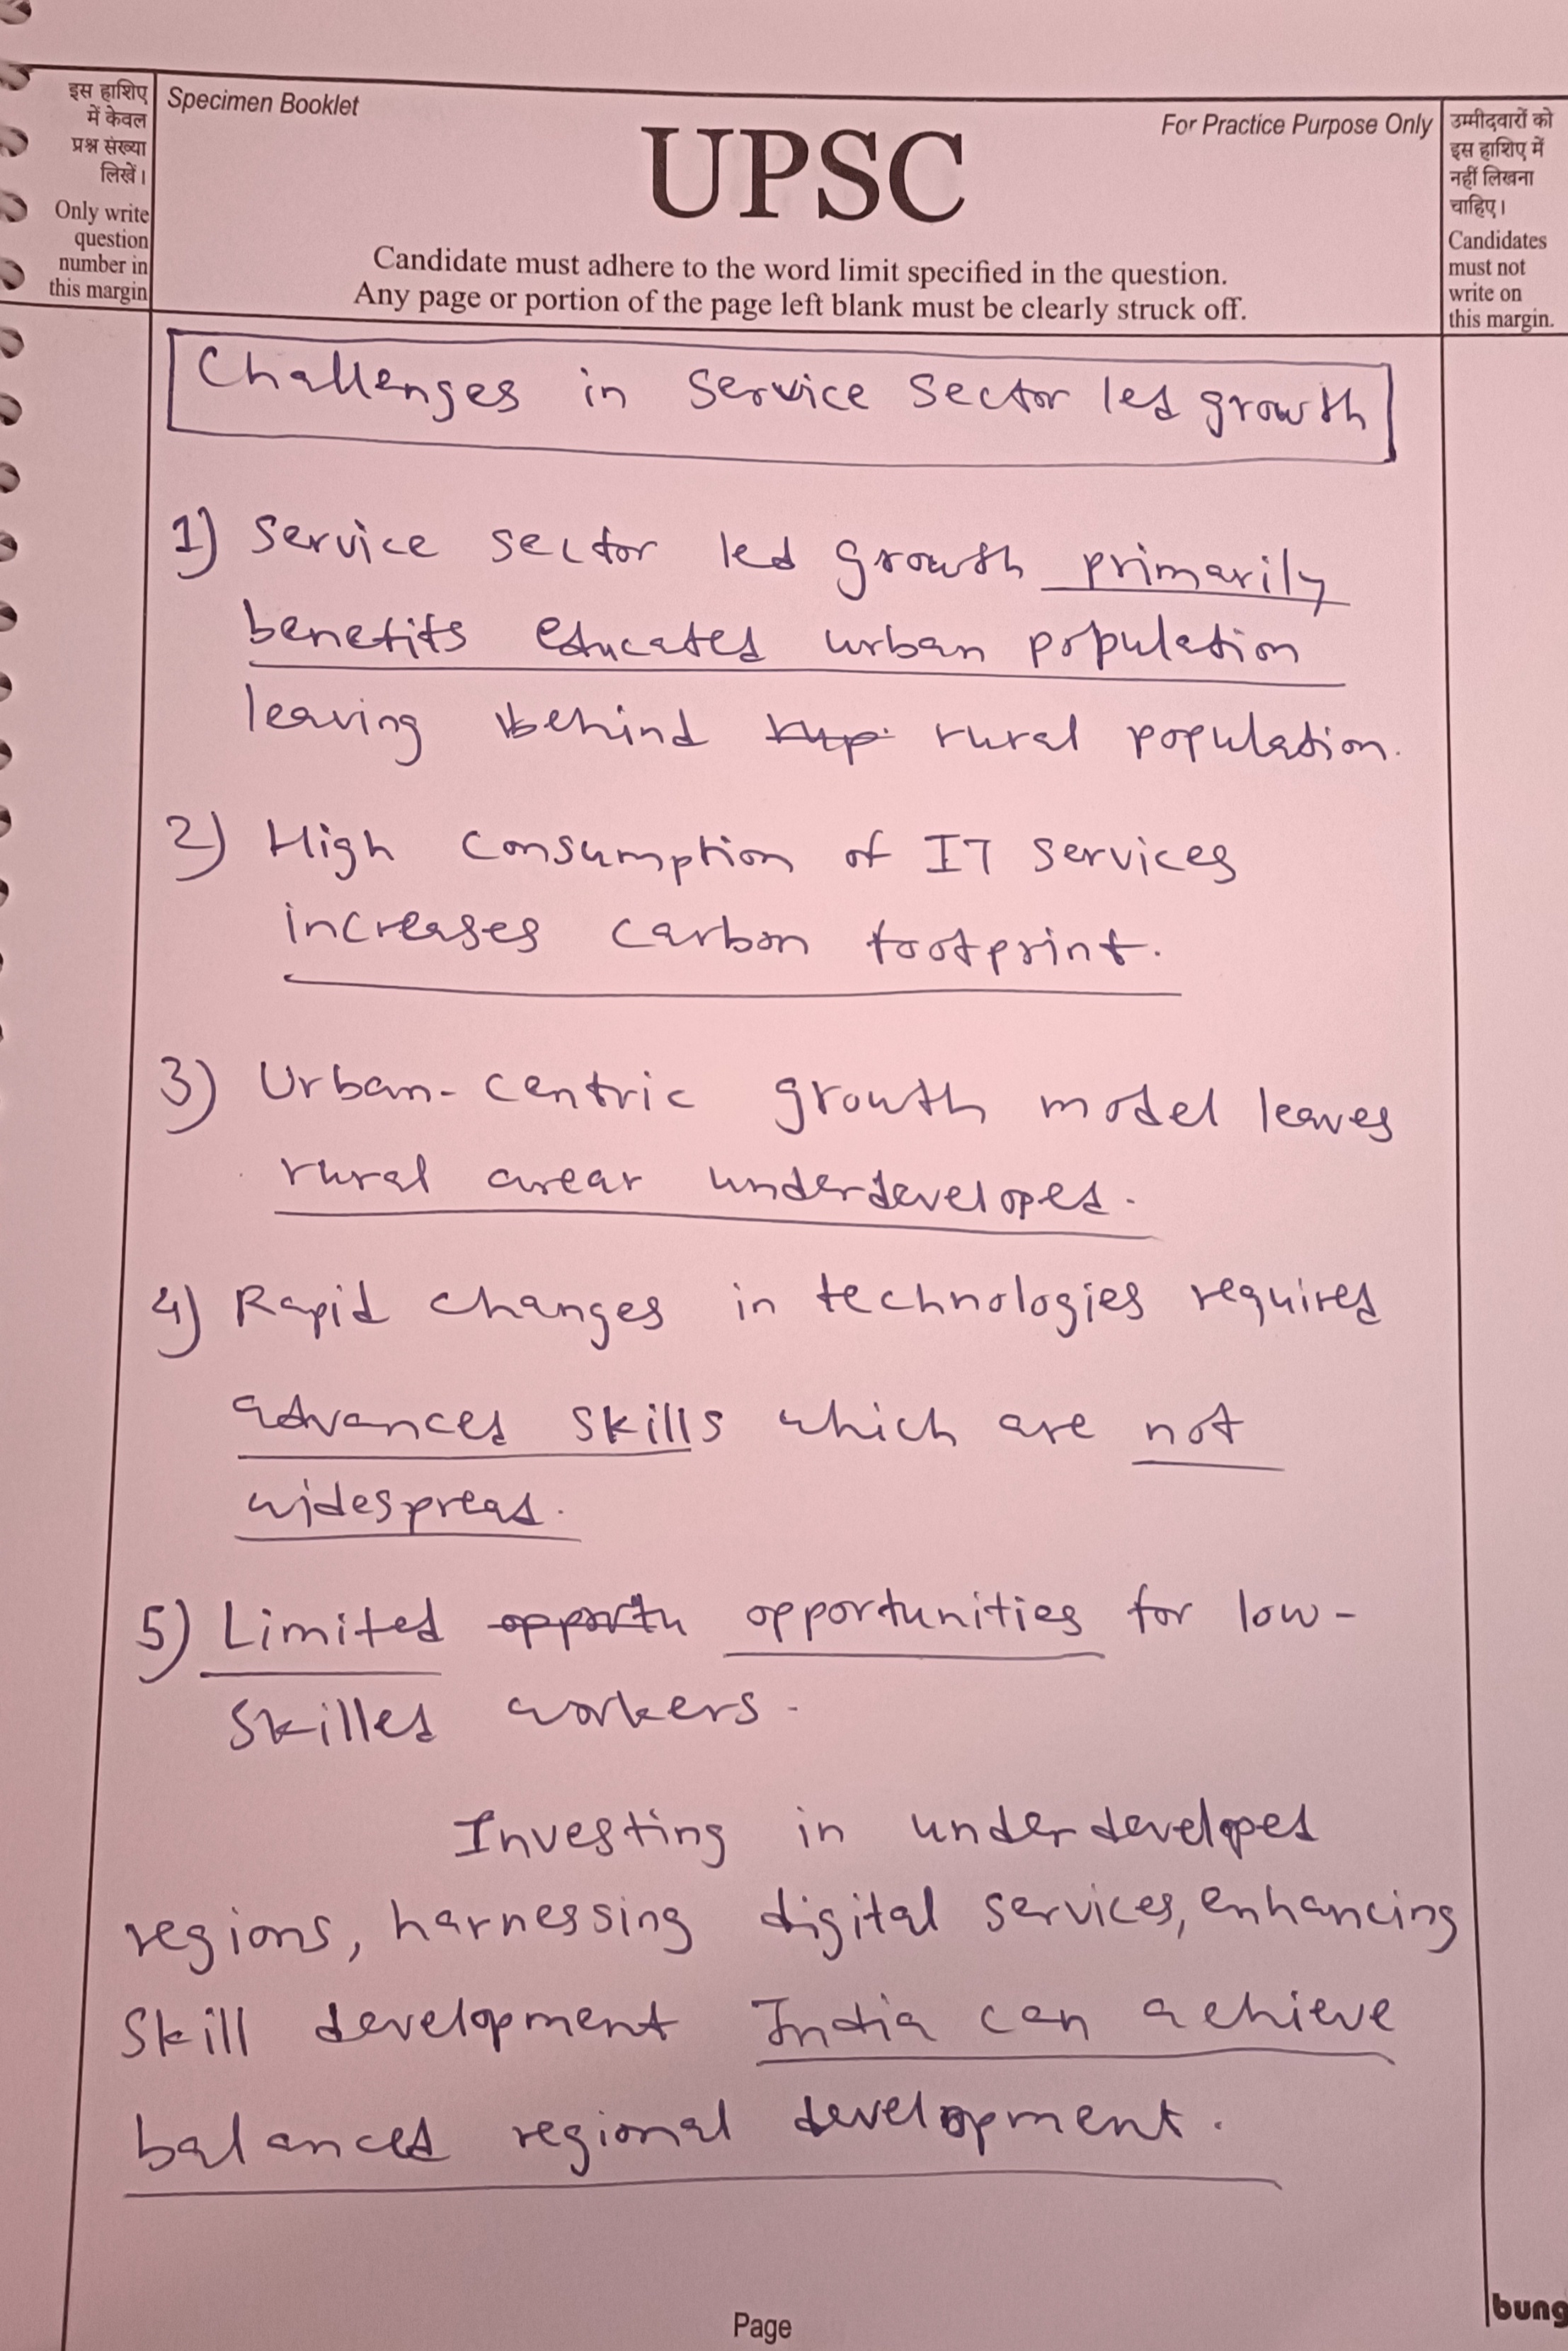 इस हाशिए
में केवल
प्रश्न संख्या
लिखें।
Only write
question
number in
this margin
Specimen Booklet
For Practice Purpose Only
UPSC
Candidate must adhere to the word limit specified in the question.
Any page or portion of the page left blank must be clearly struck off.
उम्मीदवारों को
इस हाशिए में
नहीं लिखना
चाहिए।
Candidates
must not
write on
this margin.
Challenges in Service Sector led growth
1) Service sector led growth primarily
benefits educated urban population
leaving behind rup rural population.
2) High consumption of IT services
increases carbon footprint.
3) Urban-centric growth model leaves
rural areas underdeveloped.
4) Rapid changes in technologies required
advanced skills which are not
widespread.
5) Limited opportu opportunities for low-
skilled workers.
Investing in underdeveloped
regions, harnessing digital services, enhancing
skill development India can achieve
balanced regional development.
Page
bung